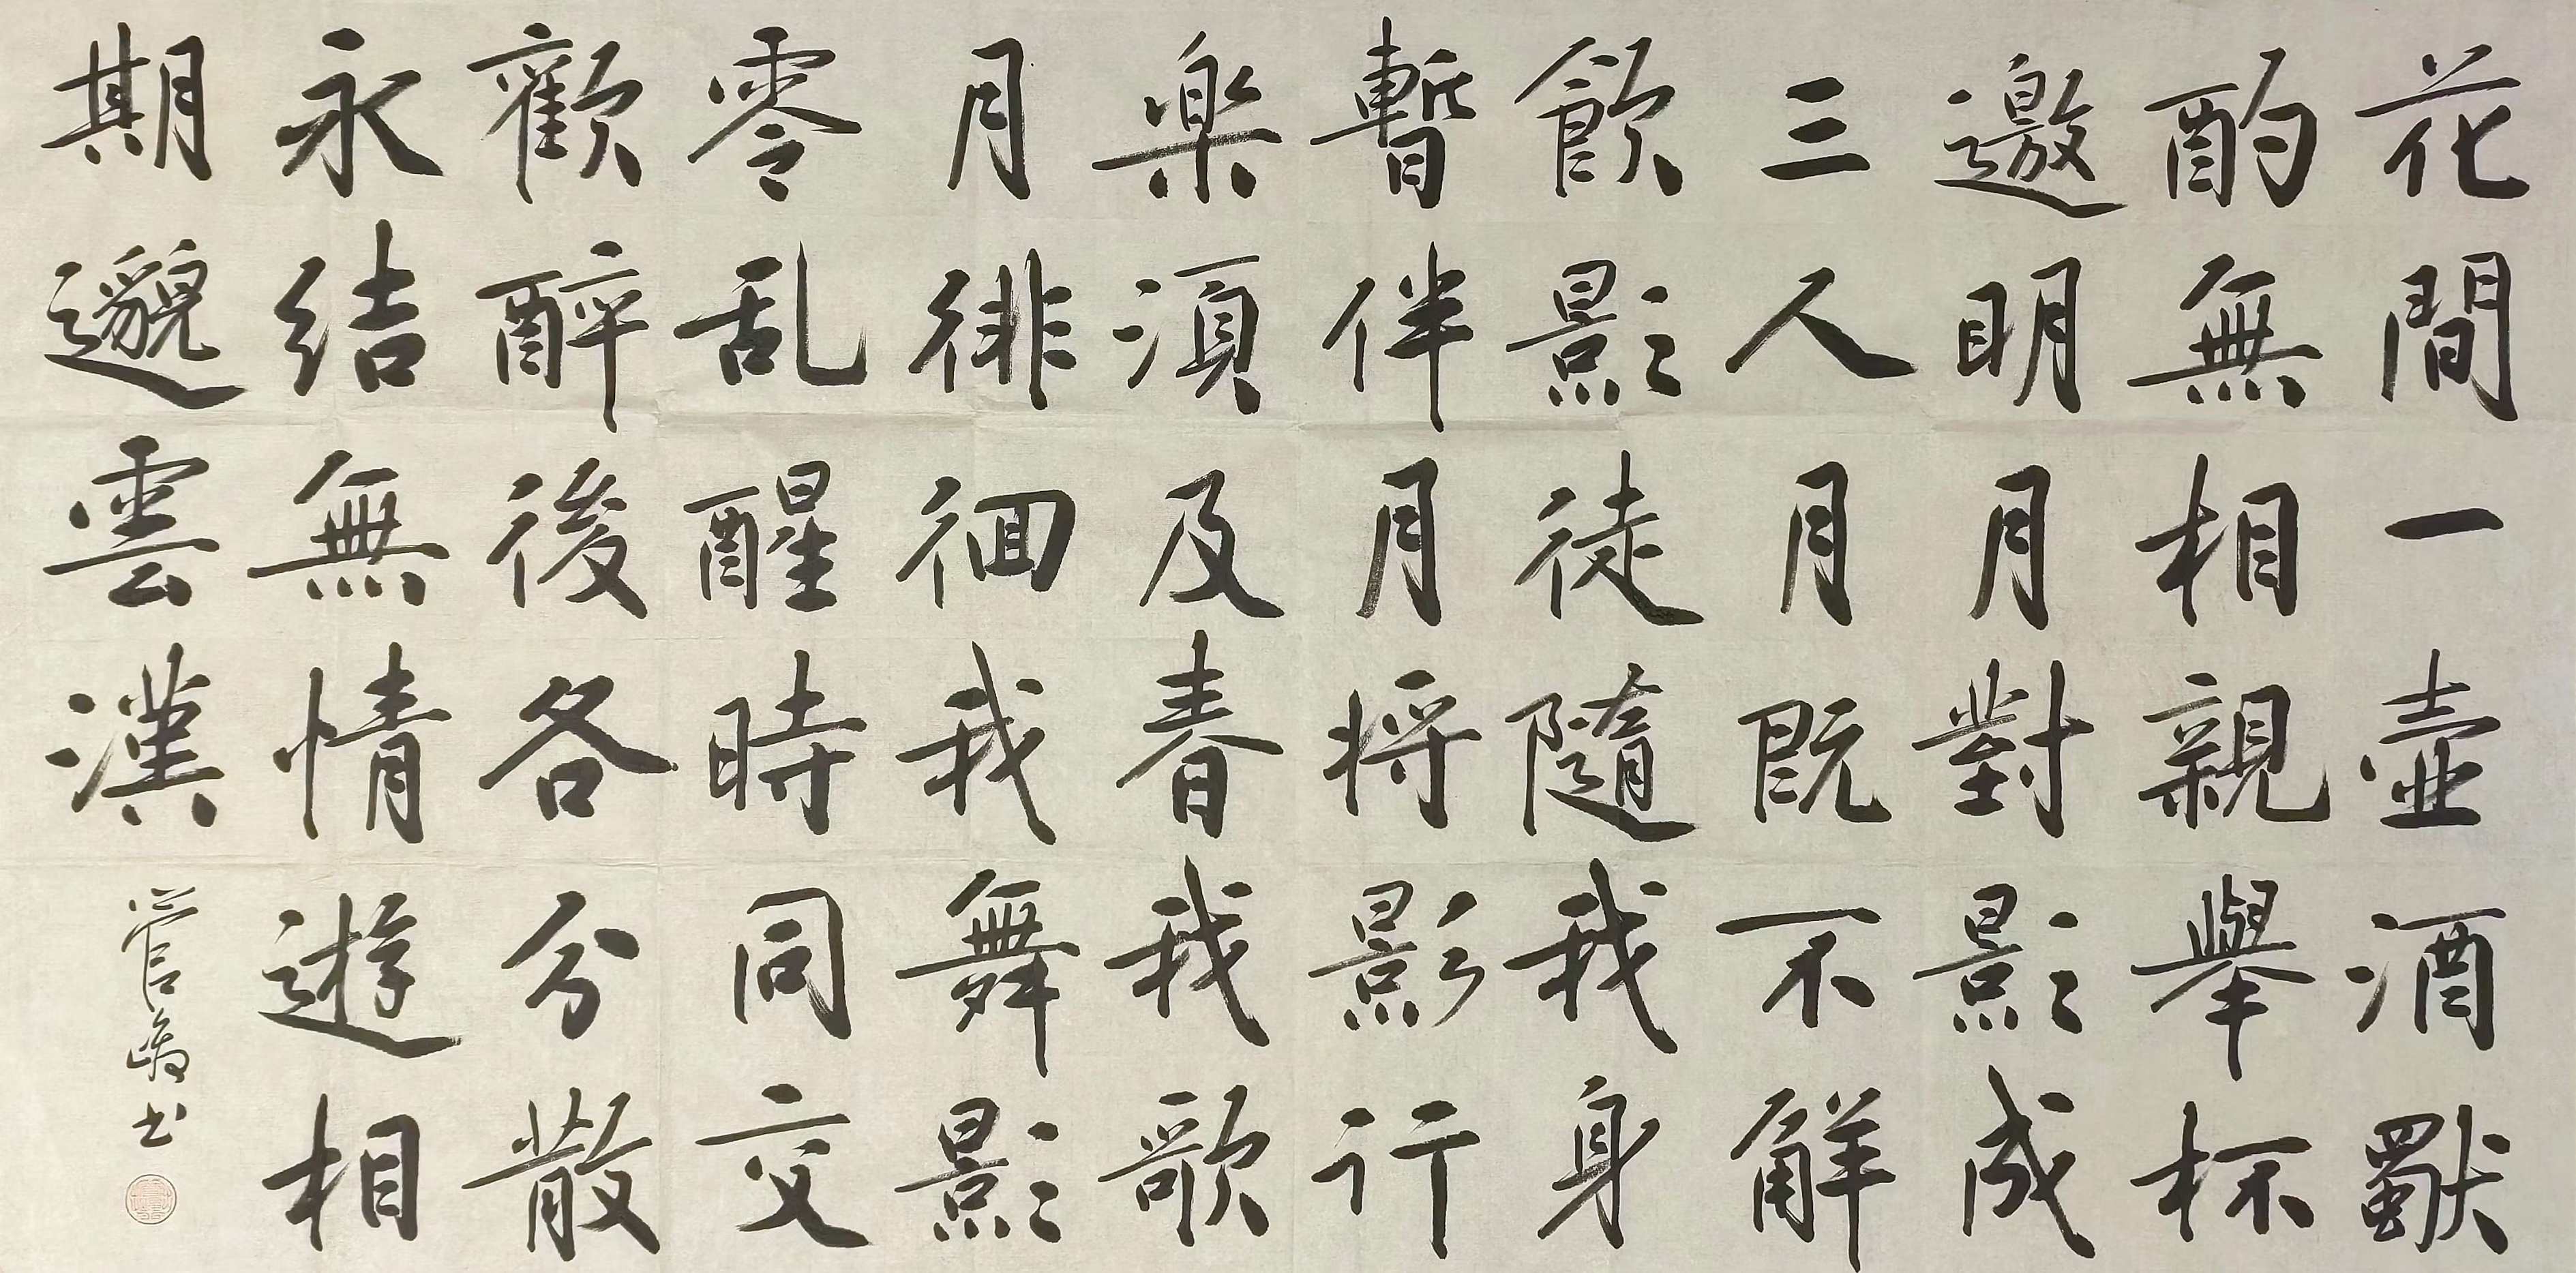 花間一壺酒獨
酌無相親舉杯
邀明月對影成
三人月既不解
飲影徒隨我身
暫伴月将影行
楽須及春我歌
月徘徊我舞影
零乱醒時同交
歡醉後各分散
永結無情遊相
期邈雲漢
菅 书